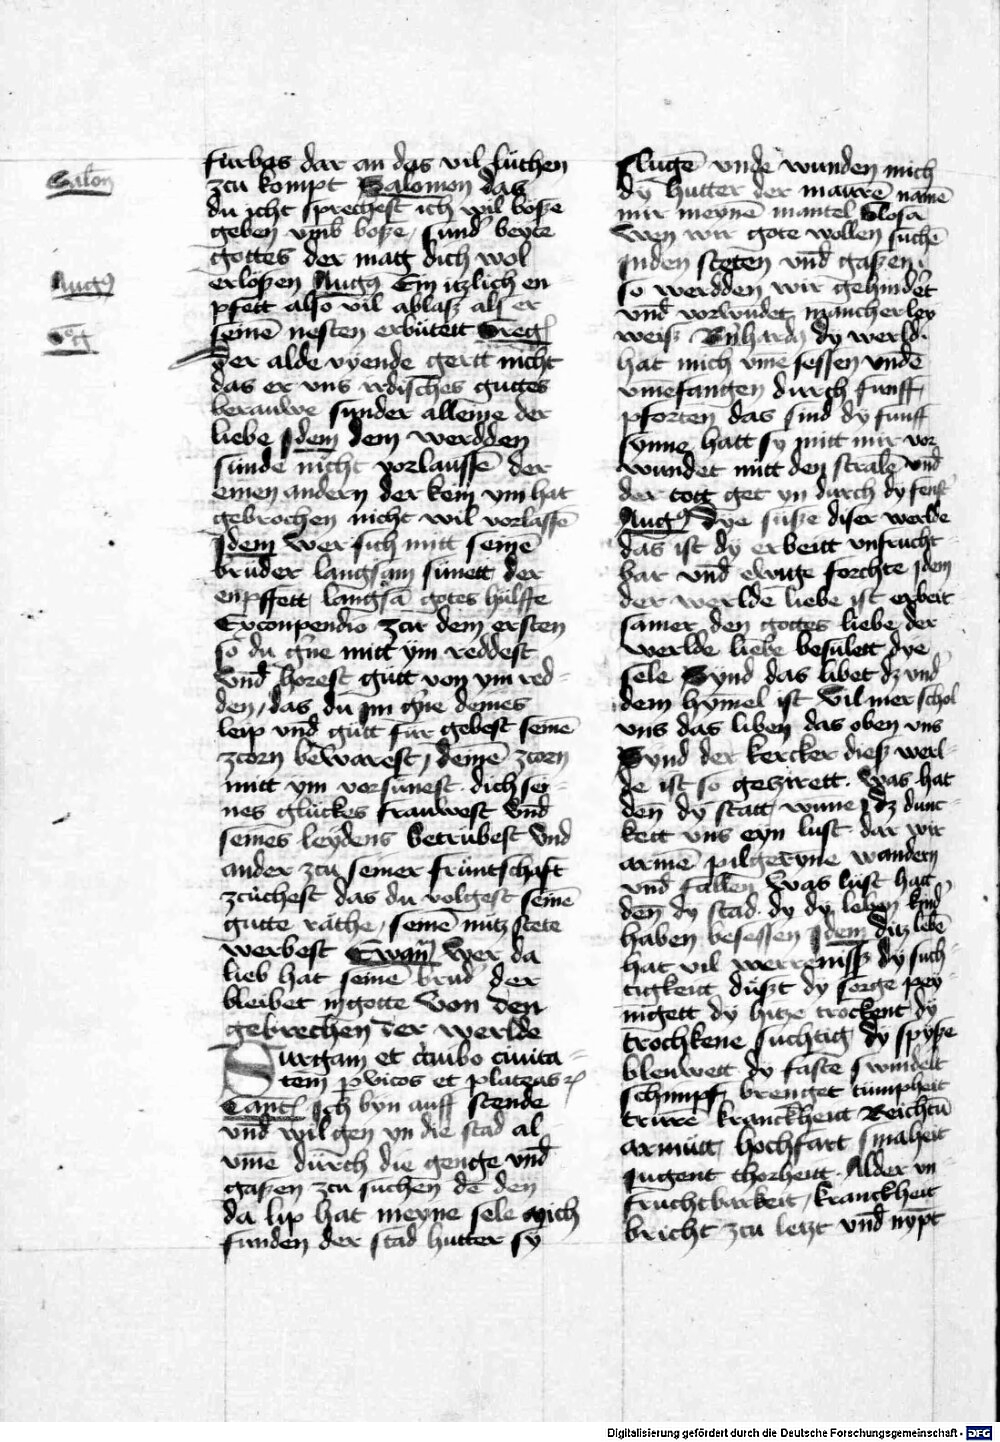 Salon
Augꝰ
Gͦg
furbas dar an das vil luthen
zcu kompt Salomon das
du icht sprechest ich wil boße
geben vmb boße, sund' beyte
gottes der mag dich wol
erloßen Augꝰ Ein itzlich en-
pfett also vil ablaß alß er
seinē nesten erbutett Greg
Der alde vyende gertt nicht
das er vns irdisches guttes
berauwe sunder alleine der
liebe Jdem dem werdden
sunde nicht vorlaussē der
einen andern der kein ym hat
gebrochen nicht wil vorlassē
Jdem Wer sich mitt seinē
bruder langsam sunett der
enpffett langsā gotes hulffe
Ex conpendio zcu dem ersten
so du g'ne mitt ym reddest
vnd horest gutt von ym red-
den, das du im g'ne deines
leip vnd gutt fur gebest seinē
zcorn bewarest, deinē zcorn
mitt ym vorsunest. dich sei-
nes gluckes frauwest vnd
seines leydens betrubest vnd
ander zcu seiner fruntschaft
zcuchest das du volgest seinē
gutte rathe, seinē nutz stete
werbest Ewan Wer da
lieb hat seinē brud' der
bleibet in gotte Von den
gebrechen der werlde
Surgam et c'cuibo ciuita-
tem p vicos et plateas ꝛc
Cant Ich byn auff stende
vnd wil gen yn die stad al
vme durch die genge vnd
gaßen zcu suchen dē den
da lip hat meyne sele Mich
funden der stad hutter sy
slugē vnde wunden mich
dy hutter der maurē namē
mir meynē mantel Glosa
Wen wir gote wollen suchē
in den stetēn vnd gaßen
so werdden wir gehind't
vnd vorwudet mancherley
weiß Bnhardꝰ dy werld
hat mich vme sessen vnde
vmefangen durch funff
pforten das sind dy funff
synne hatt sy mitt mir vor
wundet mitt den stralē vnd
der tott get yn durch dy fenst'
Augꝰ Dye suße diser werlde
das ist dy erbeitt vnfrucht-
bar vnd ewige forchte Jdem
der werldē liebe ist erbeit
samer den gottes liebe der
werlde liebe besulett dye
sele Synd das libet dz vnd'
dem hymel ist Vil mer schol
vns das liben das oben vns
Synd der kercker dieß werl-
de ist so gezirett. Was hat
den dy statt wune Dz dunc-
kett vns eyn lust dar wir
armē pilgeryne wandern
vnd fallen Was lust hatt
den dy stad. dy dy leben kind'
haben besessen Jdem diz lebē
hat vil werreniss dy such
tigkeitt dußt dy sorge pey
nigett dy hitze trockent dy
trochkene suchtig dy spyße
blewett dy faste swindelt
schimpf brenget tumpheit
trurē kranckheitt Reichtū
armutt hochfart smaheit
Jugent thorheitt. Alder vn
fruchtbarkeit, kranckheit
bricht zcu letzt vnd nypt
Digitalisierung gefördert durch die Deutsche Forschungsgemeinschaft - DFG